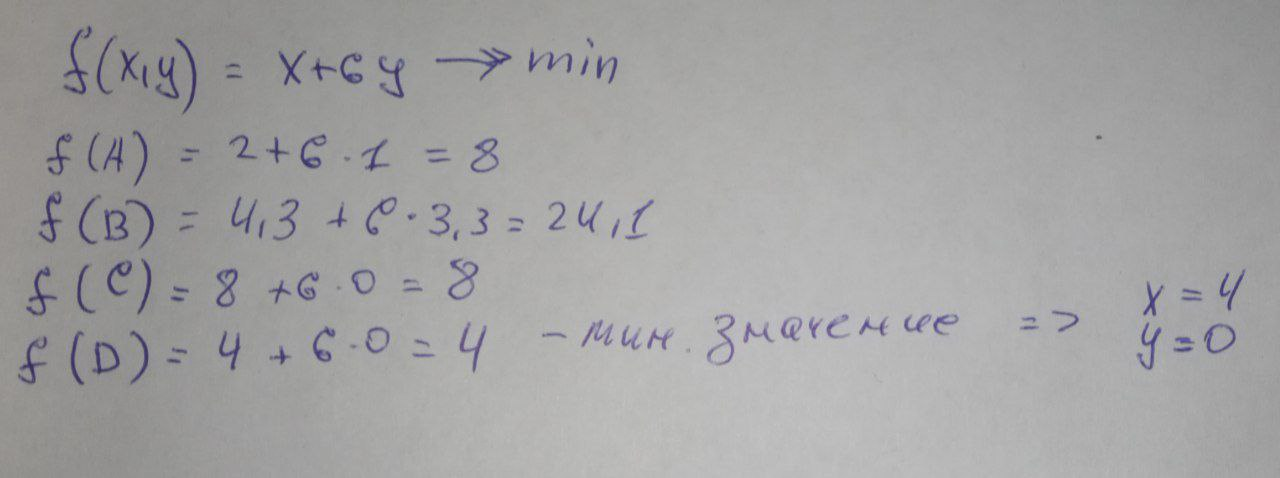 f(x,y) = x+6y → min
f(A) = 2+6·1 = 8
f(B) = 4,3 + 6·3,3 = 24,1
f(C) = 8 +6·0 = 8
f(D) = 4 + 6·0 = 4 – мин. значение => x = 4
y = 0